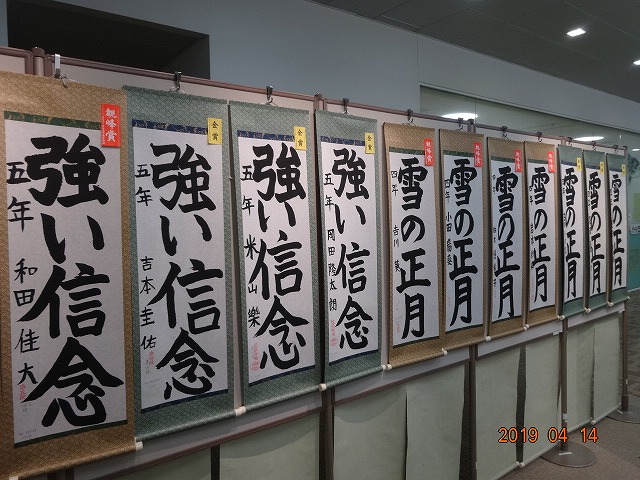 親峰賞
強い信念
五年 和田佳大
金賞
強い信念
五年 吉本圭佑
金賞
強い信念
五年 米山樂
金賞
強い信念
五年 岡田陸太朗
雪の正月
四年 吉川
雪の正月
四年 小田
雪の正月
雪の正月
雪の正月
雪の正月
雪の正月
2019 04 14